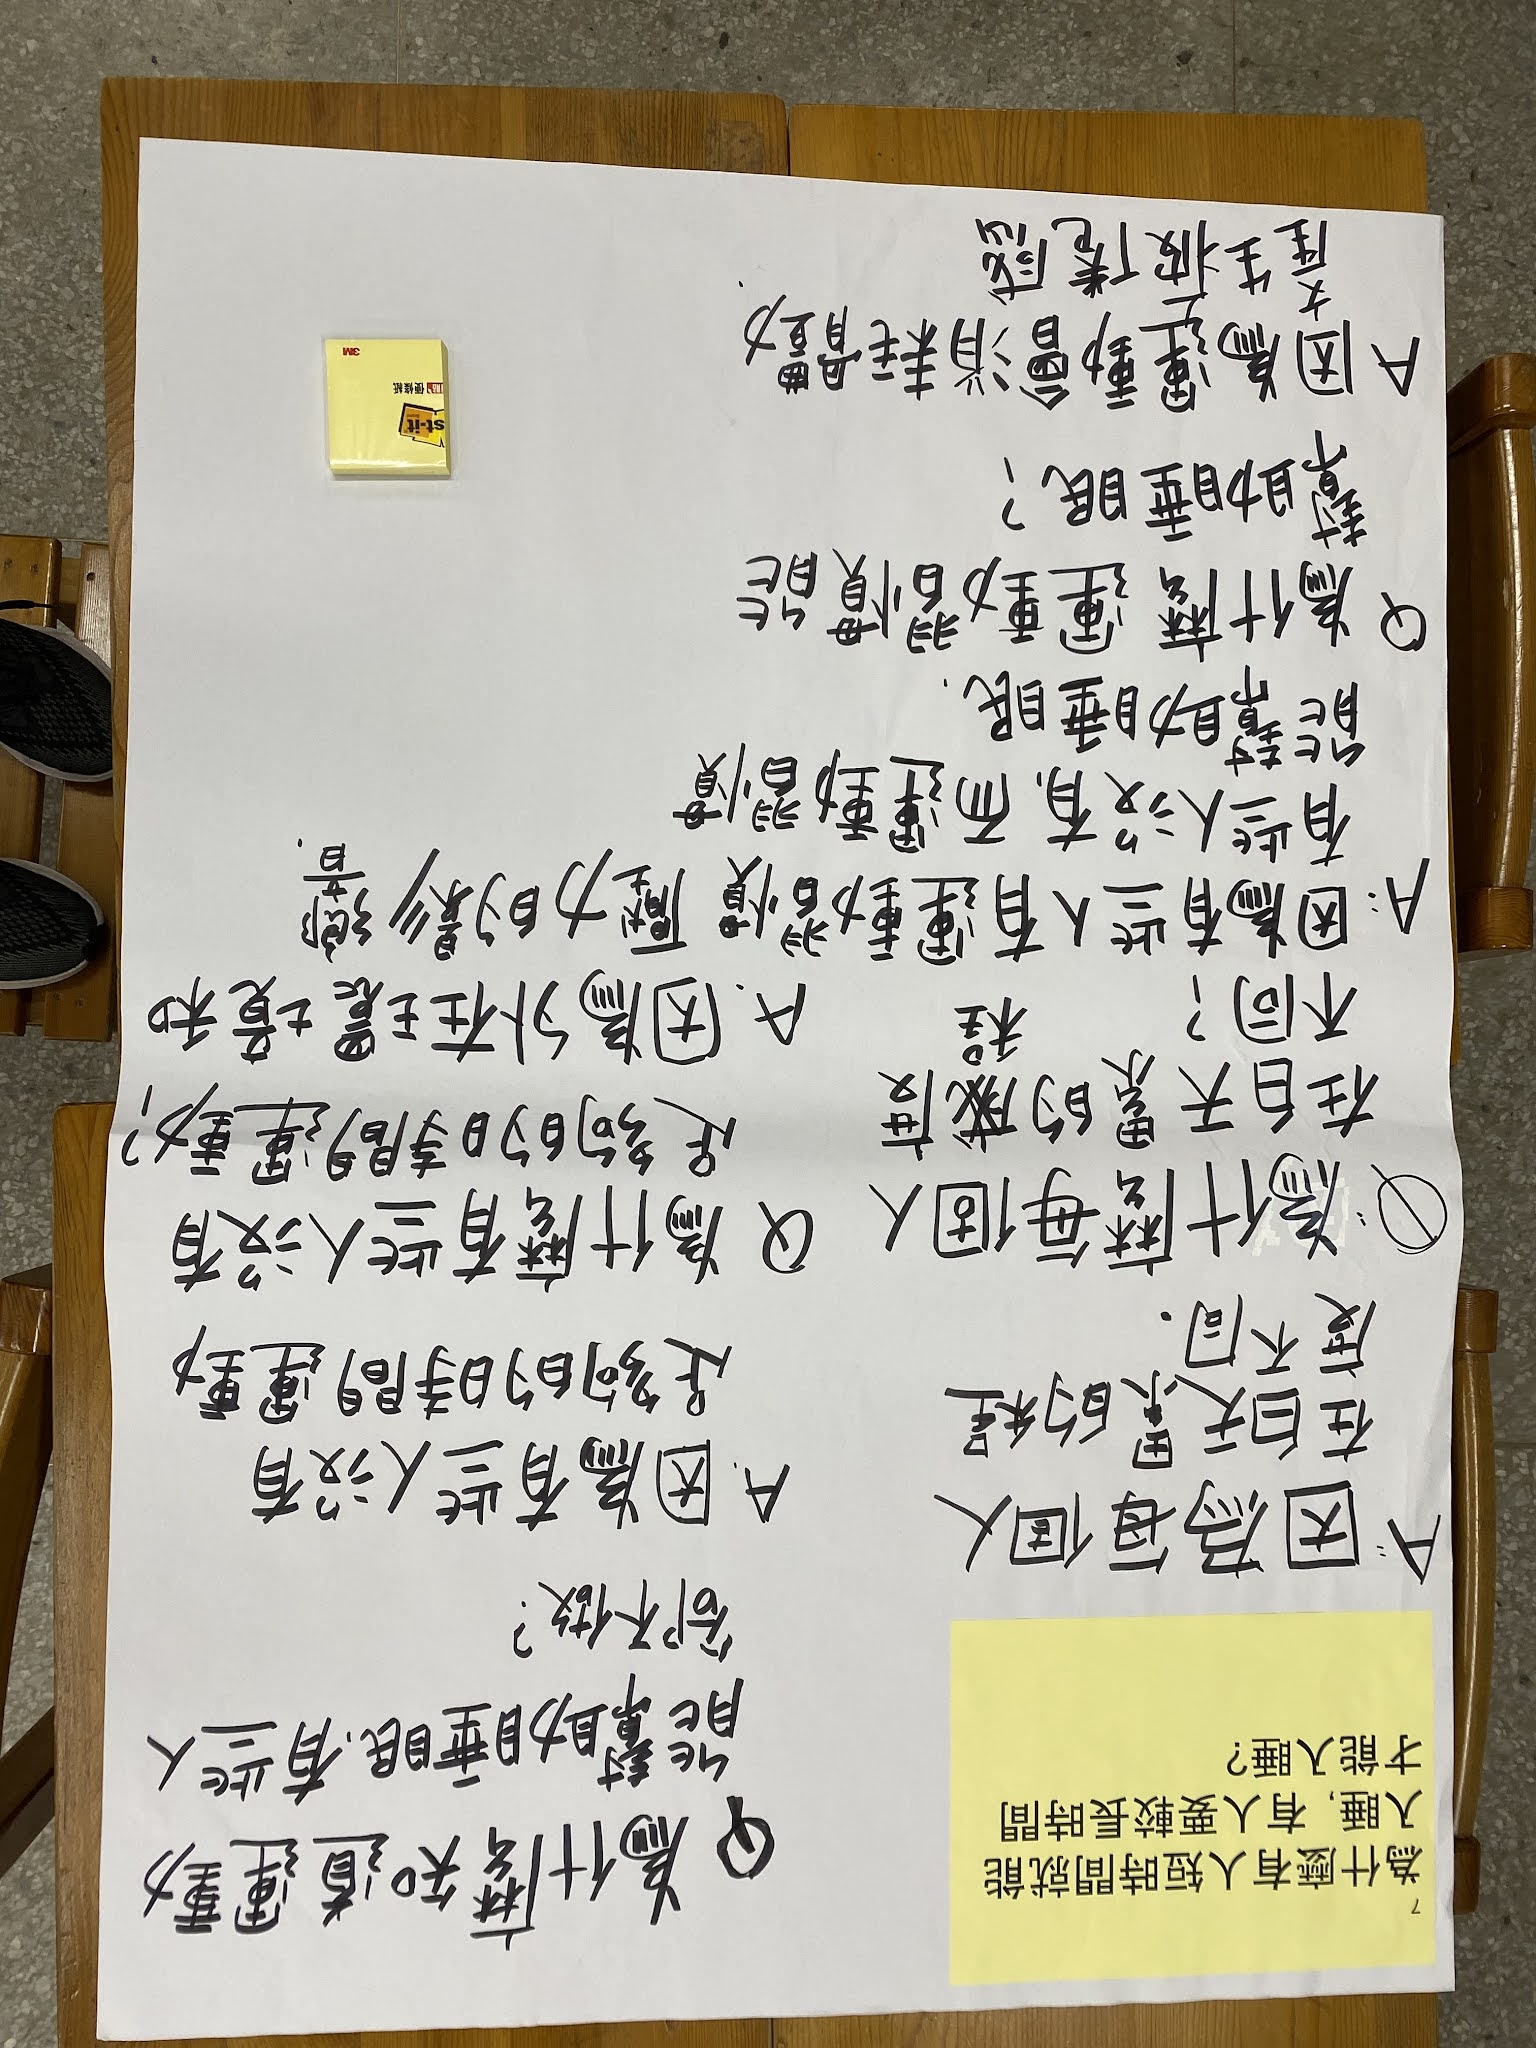 7
為什麼有人短時間就能
入睡, 有人要較長時間
才能入睡?
A:因為每個人
在白天累的程
度不同.
Q:為什麼每個人
在白天累的程度
不同?
A:因為有些人有運動習慣
有些人沒有,而運動習慣
能幫助睡眠.
Q 為什麼運動習慣能
幫助睡眠?
A 因為運動會消耗體力
產生疲倦感
Q 為什麼知道運動
能幫助睡眠,有些人
卻不做?
A.因為有些人沒有
足夠的時間運動
Q 為什麼有些人沒有
足夠的時間運動?
A.因為外在環境和
壓力的影響.
st-it
便條紙
3M